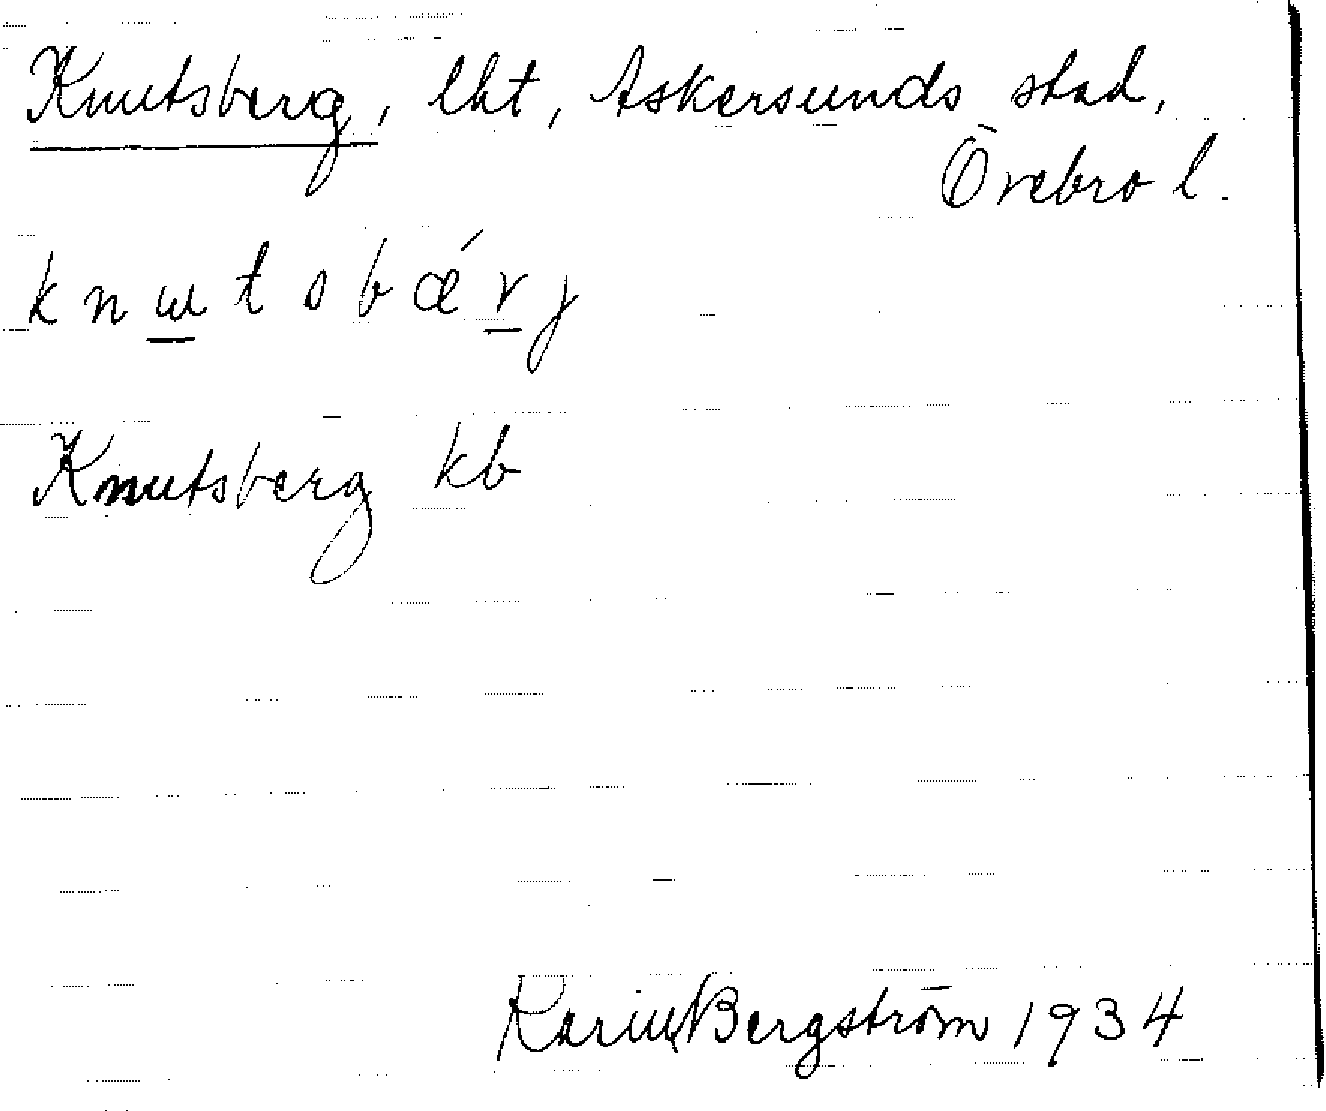 Knutsberg, lht, Askersunds stad,
Örebro l.
k n ɯ t s b ǽ r j
Knutsberg kb
Karin Bergström 1934